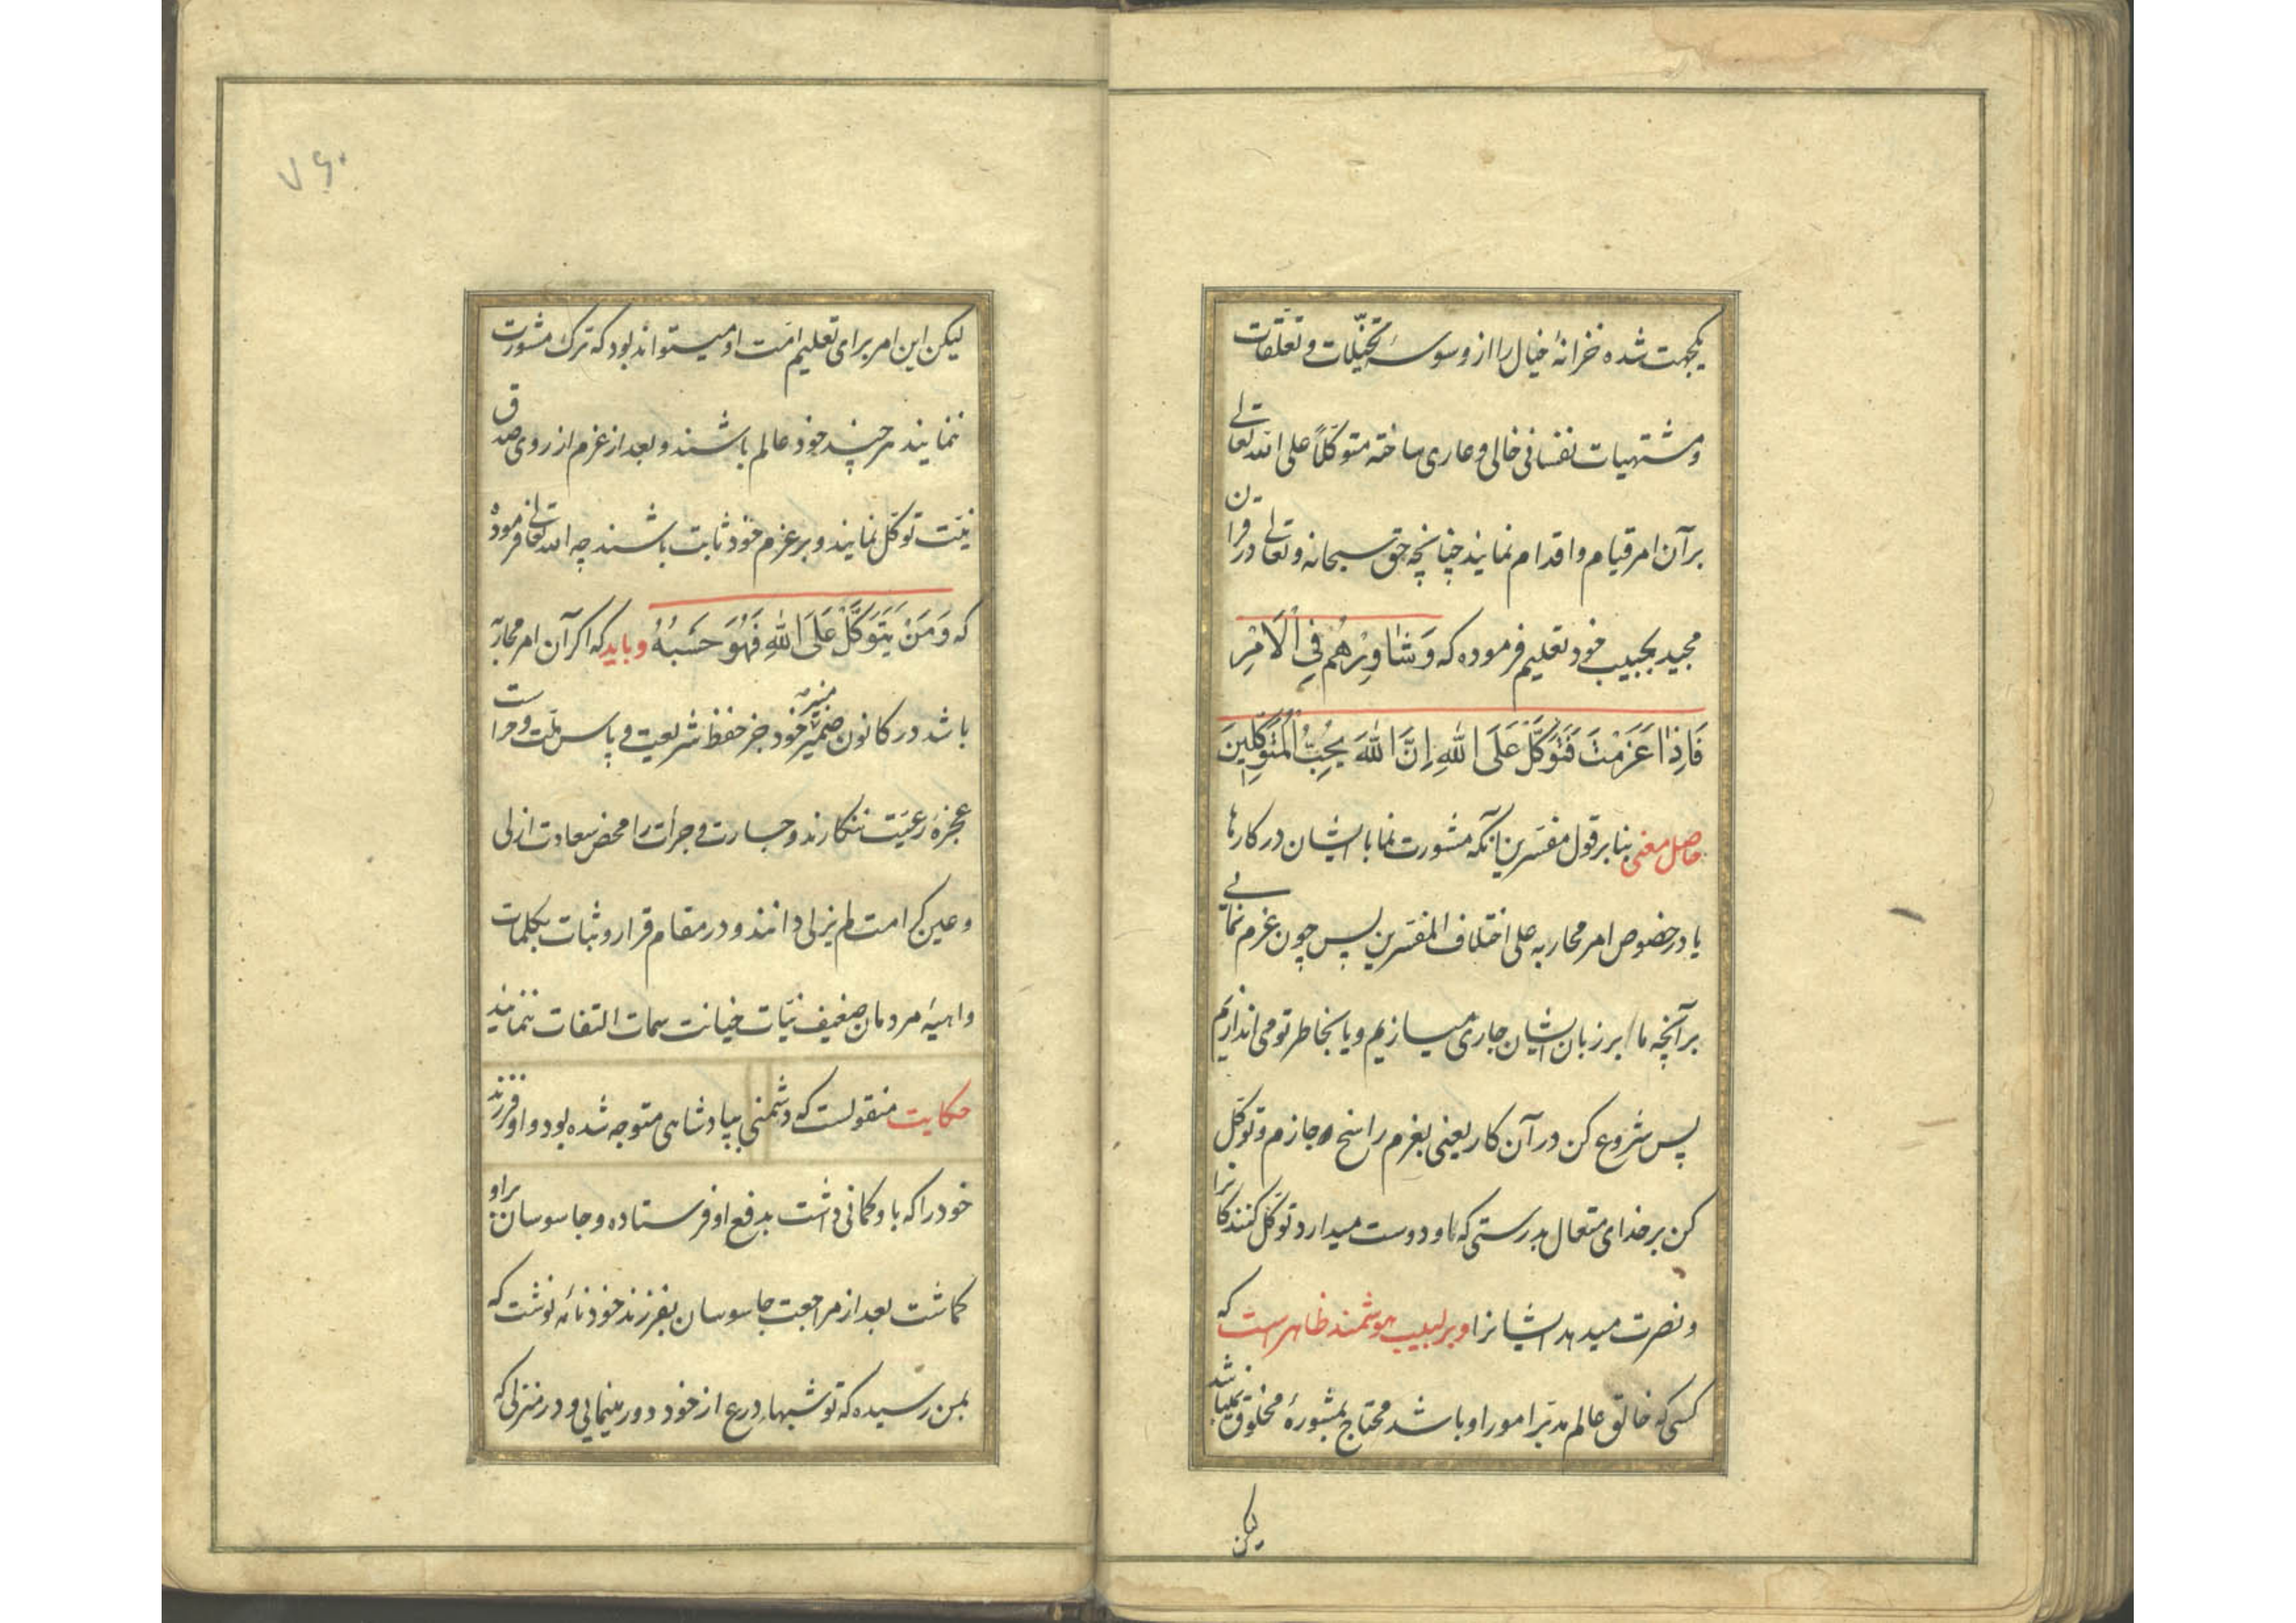 یکجهت شده خزانهٔ خیال را از وسوسهٔ تخیّلات و تعلّقات
و مشتهیات نفسانی خالی و عاری ساخته متوکّلاً علی الله تعالی
بر آن امر قیام و اقدام نمایند چنانچه حق سبحانه و تعالی در قرآن
مجید بحبیب خود تعلیم فرموده که وَشَاوِرْهُم فِی الْاَمْرِ
فَاِذَا عَزَمْتَ فَتَوَکَّلْ عَلَی اللهِ اِنَّ اللهَ یُحِبُّ الْمُتَوَکِّلِینَ
حاصل معنی بنا بر قول مفسّرین آنکه مشورت نما با ایشان در کارها
یا در خصوص امر محاربه علی اختلاف المفسّرین پس چون عزم نمایی
بر آنچه ما بر زبان ایشان جاری میسازیم و یا بخاطر تو می اندازیم
پس شروع کن در آن کار یعنی بعزم راسخ جازم و توکّل
کن بر خدای متعال بدرستی که او دوست میدارد توکّل کنندکانرا
و نصرت میدهد ایشانرا و بر لبیب هوشمند ظاهر است که
کسی که خالق عالم مدبّر امور او باشد محتاج بمشورهٔ مخلوق نمیباشد
لیکن
۷۶۰
لیکن این امر برای تعلیم امّت او میتواند بود که ترک مشورت
ننمایند هر چند خود عالم باشند و بعد از عزم از روی صدق
نیّت توکّل نمایند و بر عزم خود ثابت باشند چه الله تعالی فرموده
که وَمَنْ یَتَوَکَّلْ عَلَی اللهِ فَهُوَ حَسْبُهُ و باید که اکر آن امر محاربه
باشد در کانون ضمیر منیر خود جز حفظ شریعت و پاس ملّت و حراست
عجزهٔ رعیّت ننکارند و جسارت و جرأت را محض سعادت ازلی
و عین کرامت لم یزلی دانند و در مقام قرار و ثبات بکلمات
واهیهٔ مردمان ضعیف نیّات خیانت سمات التفات ننمایند
حکایت منقولست که دشمنی بپادشاهی متوجه شده بود و او فرزند
خود را که باو کمانی داشت بدفع او فرستاده و جاسوسان بر او
کماشت بعد از مراجعت جاسوسان بفرزند خود نامه نوشت که
بمن رسیده که تو شبها درع از خود دور مینمایی و در منزلی که